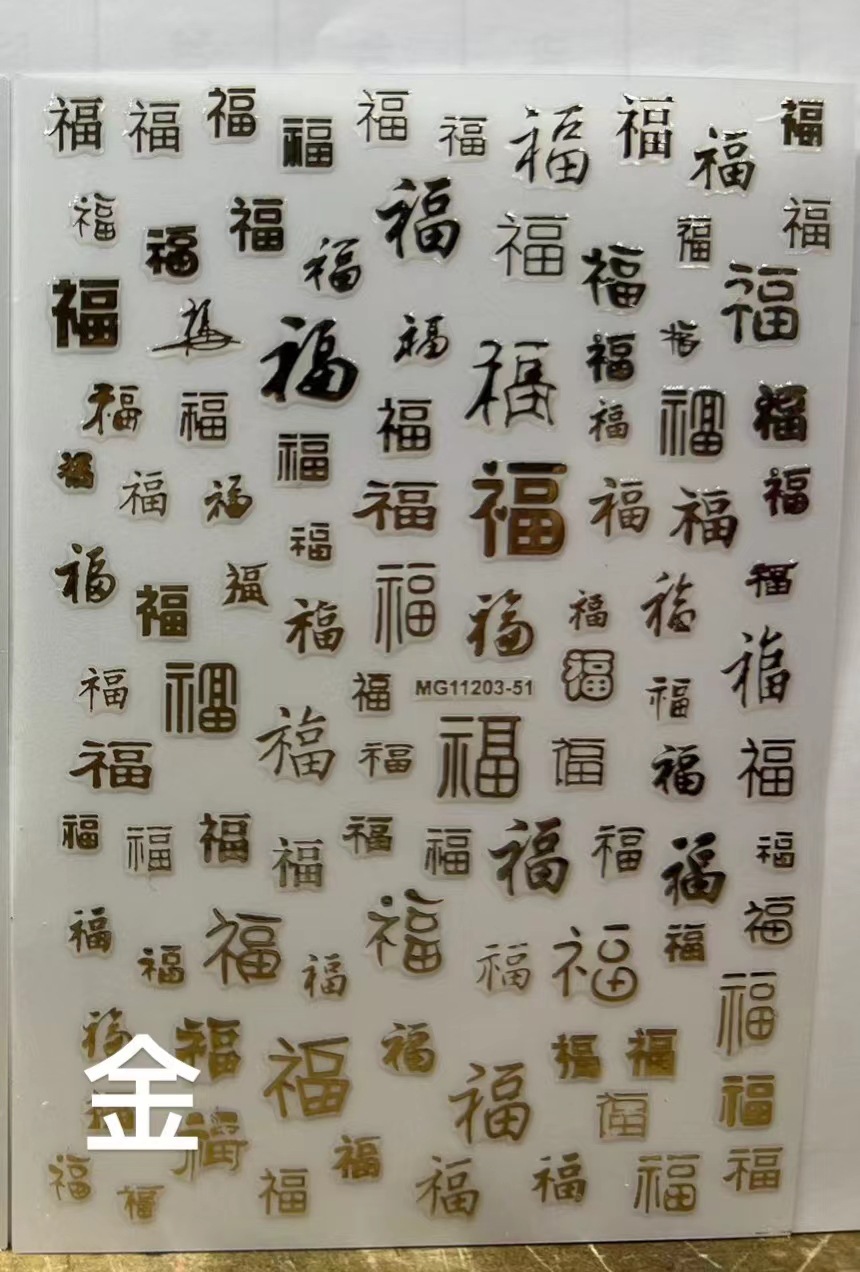 福福福福福福福福福福
福福福福福福福福福
福福福福福福福福
福福福福福福福
福福福福福福福福福
福福福福福福福福福
福福福 MG11203-51 福福福
福福福福福福福
福福福福福福福福福福
福福福福福福福福福
福福福福福福福
金
福福福福
福福福福福福福福